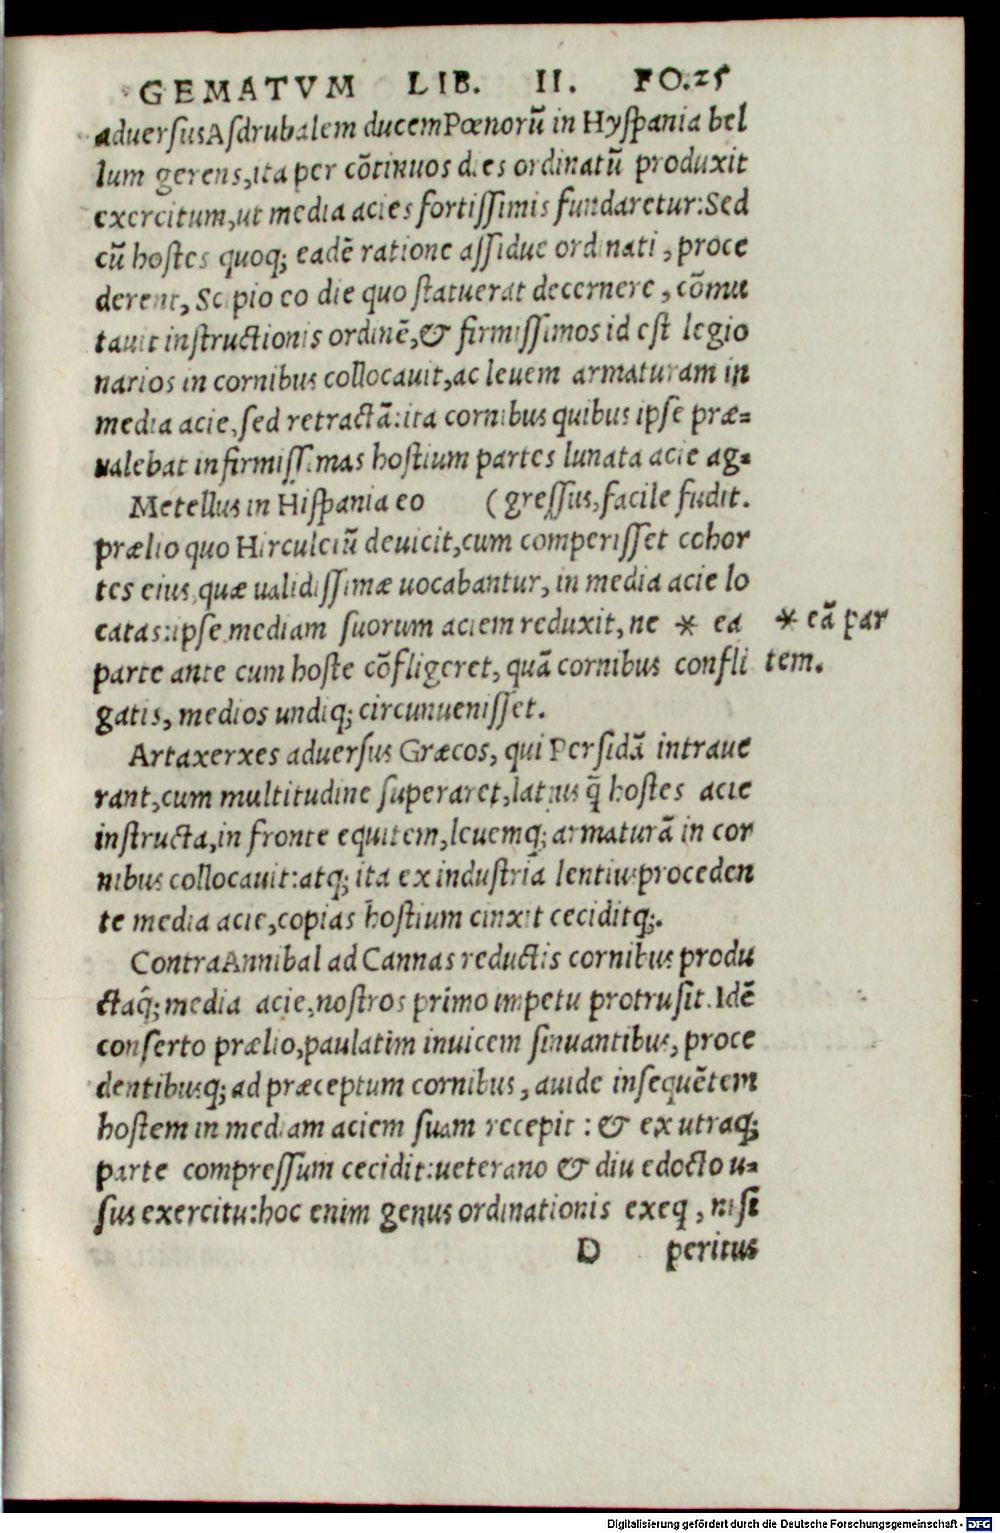 GEMATVM LIB. II. FO.25
aduersusAsdrubalem ducemPœnorū in Hyspania bel
lum gerens,ita per cōtinuos dies ordinatū produxit
exercitum,ut media acies fortissimis fundaretur:Sed
cū hostes quoq; eadē ratione assidue ordinati , proce
derent, Scipio eo die quo statuerat decernere , cōmu
tauit instructionis ordinē,& firmissimos id est legio
narios in cornibus collocauit,ac leuem armaturam in
media acie,sed retractā:ita cornibus quibus ipse præ=
ualebat infirmissimas hostium partes lunata acie ag=
Metellus in Hispania eo (gressus,facile fudit.
prælio quo Hirculeiū deuicit,cum comperisset cohor
tes eius,quæ ualidissimæ uocabantur, in media acie lo
catas:ipse mediam suorum aciem reduxit, ne * ea
* eā par
parte ante cum hoste cōfligeret, quā cornibus confli
tem.
gatis, medios undiq; circunuenisset.
Artaxerxes aduersus Græcos, qui Persidā intraue
rant,cum multitudine superaret,latius q̄ hostes acie
instructa,in fronte equitem,leuemq; armaturā in cor
nibus collocauit:atq; ita ex industria lentius proceden
te media acie,copias hostium cinxit ceciditq;.
ContraAnnibal ad Cannas reductis cornibus produ
ctaq; media acie,nostros primo impetu protrusit.Idē
conserto prælio,paulatim inuicem sinuantibus, proce
dentibusq; ad præceptum cornibus, auide insequētem
hostem in mediam aciem suam recepit : & ex utraq;
parte compressum cecidit:ueterano & diu edocto u=
sus exercitu:hoc enim genus ordinationis exeq , nisi
D peritus
Digitalisierung gefördert durch die Deutsche Forschungsgemeinschaft - DFG